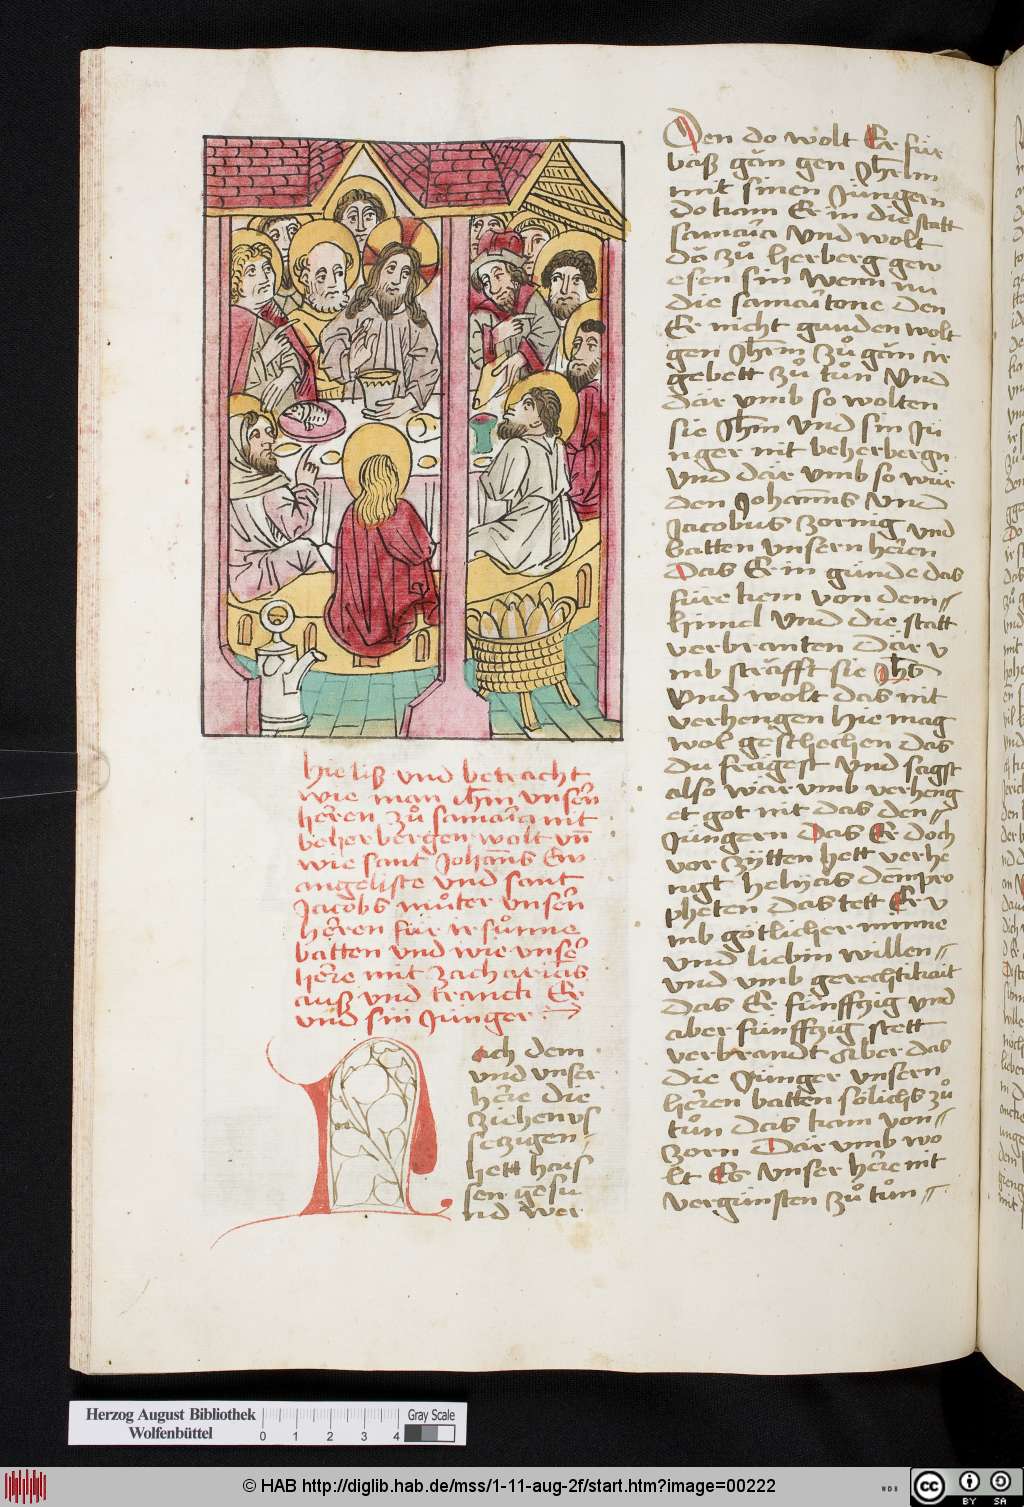 hie liß vnd betracht
wie man ihm vnsern
herren zů samaria nit
beherbergen wolt vn̄
wie sant Johans Ew
angeliste vnd sant
Jacobs můter vnsern
herren für ir sůnne
batten vnd wie vnser
herre mit zacharias
auß vnd tranck Er
vnd sin Jünger
Nach dem
vnd vnser
herre die
ziehen vſ
setzigen
hett haiſ
sen gesu
nd wer
den do wolt Er für
baß gan gen Jhrlm
mit sinen Jüngern
do kam Er in die statt
samaria vnd wolt
da zů herberg gew
esen sin wenn nu
die samaritone den
Er nicht gunden wolt
gen Jhrm zů gan ir
gebett zů tůn vnd
dar vmb so wolten
sie Jhm vnd sin Jü
nger nit beherbergn
vnd dar vmb so wur
den Johanns vnd
Jacobus zornig vnd
batten vnsern herren
Das Er in gunde das
füre kem von dem
himel vnd die statt
verbranten Dar v
mb strafft sie Jhs
vnd wolt das nit
verhengen hie mag
wol geschechen das
du fragest vnd sagst
also war vmb verheng
et got nit das den
Jüngern Das Er doch
vor zytten hett verhe
ngt helyas dem pro
pheten das tett Er v
mb götlicher minne
vnd liebin willen
vnd vmb gerechtikait
das Er fünffzig vnd
aber fünffzig stett
verbrandt Aber das
die Jünger vnsern
herren batten sölichs zů
tůn das kam von
zorn Dar vmb wo
lt Es vnser herre nit
vergünsten zů tůn
Herzog August Bibliothek
Wolfenbüttel
0 1 2 3 4
Gray Scale
© HAB http://diglib.hab.de/mss/1-11-aug-2f/start.htm?image=00222
WDB
cc BY SA